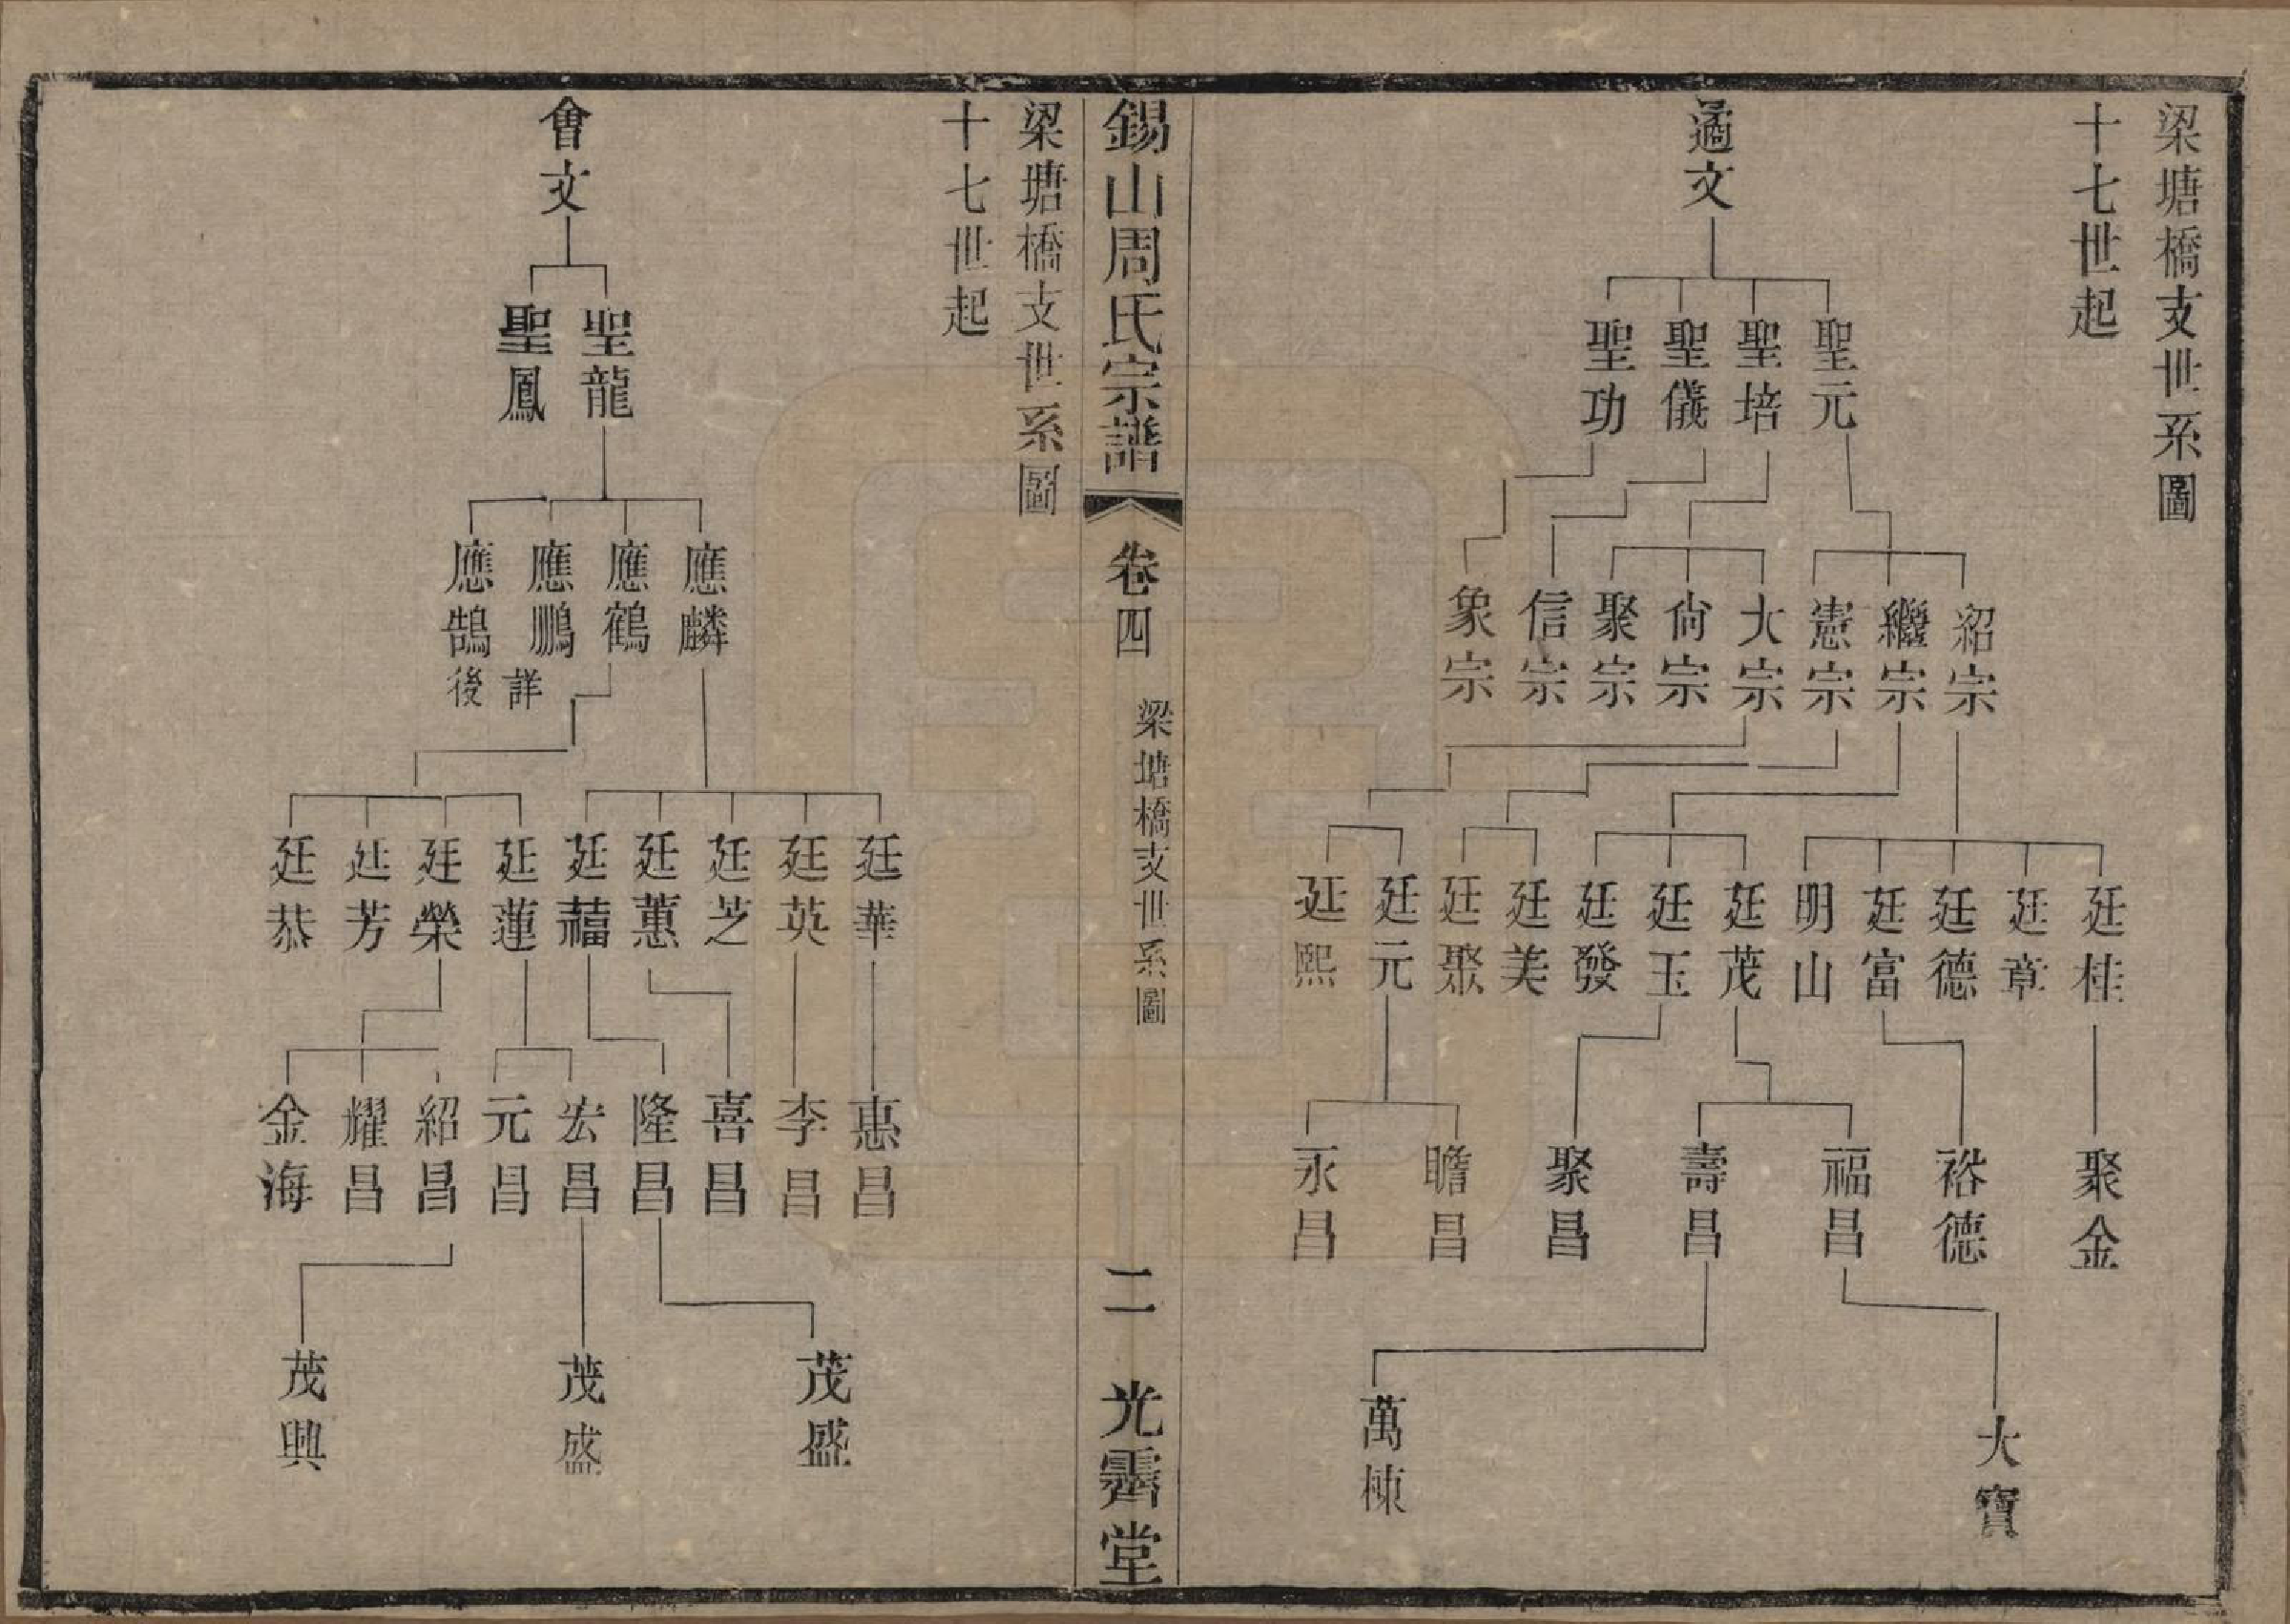 梁塘橋支世系圖
十七世起
遹文
聖元
聖培
聖儀
聖功
紹宗
繼宗
憲宗
大宗
尙宗
聚宗
信宗
象宗
廷桂
廷章
廷德
廷富
明山
廷茂
廷玉
廷發
廷美
廷聚
廷元
廷熙
聚金
裕德
福昌
壽昌
聚昌
瞻昌
永昌
大寶
萬棟
錫山周氏宗譜
卷四
梁塘橋支世系圖
二
光霽堂
梁塘橋支世系圖
十七世起
會文
聖龍
聖鳳
應麟
應鶴
應鵬
應鵠
詳後
廷華
廷英
廷芝
廷蕙
廷福
廷蓮
廷榮
廷芳
廷恭
惠昌
李昌
喜昌
隆昌
宏昌
元昌
紹昌
耀昌
金海
茂盛
茂盛
茂興